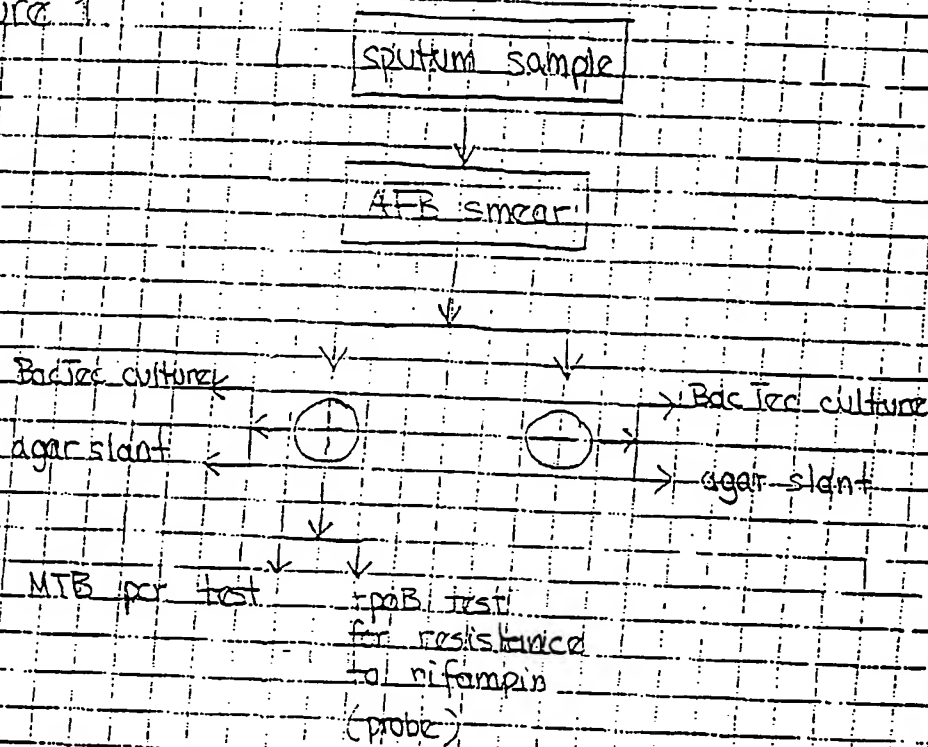 ure 1
sputum sample
AFB smear
+
−
BacTec culture
agar slant
BacTec culture
agar slant
MTB pcr test
rpoB test
for resistance
to rifampin
(probe)